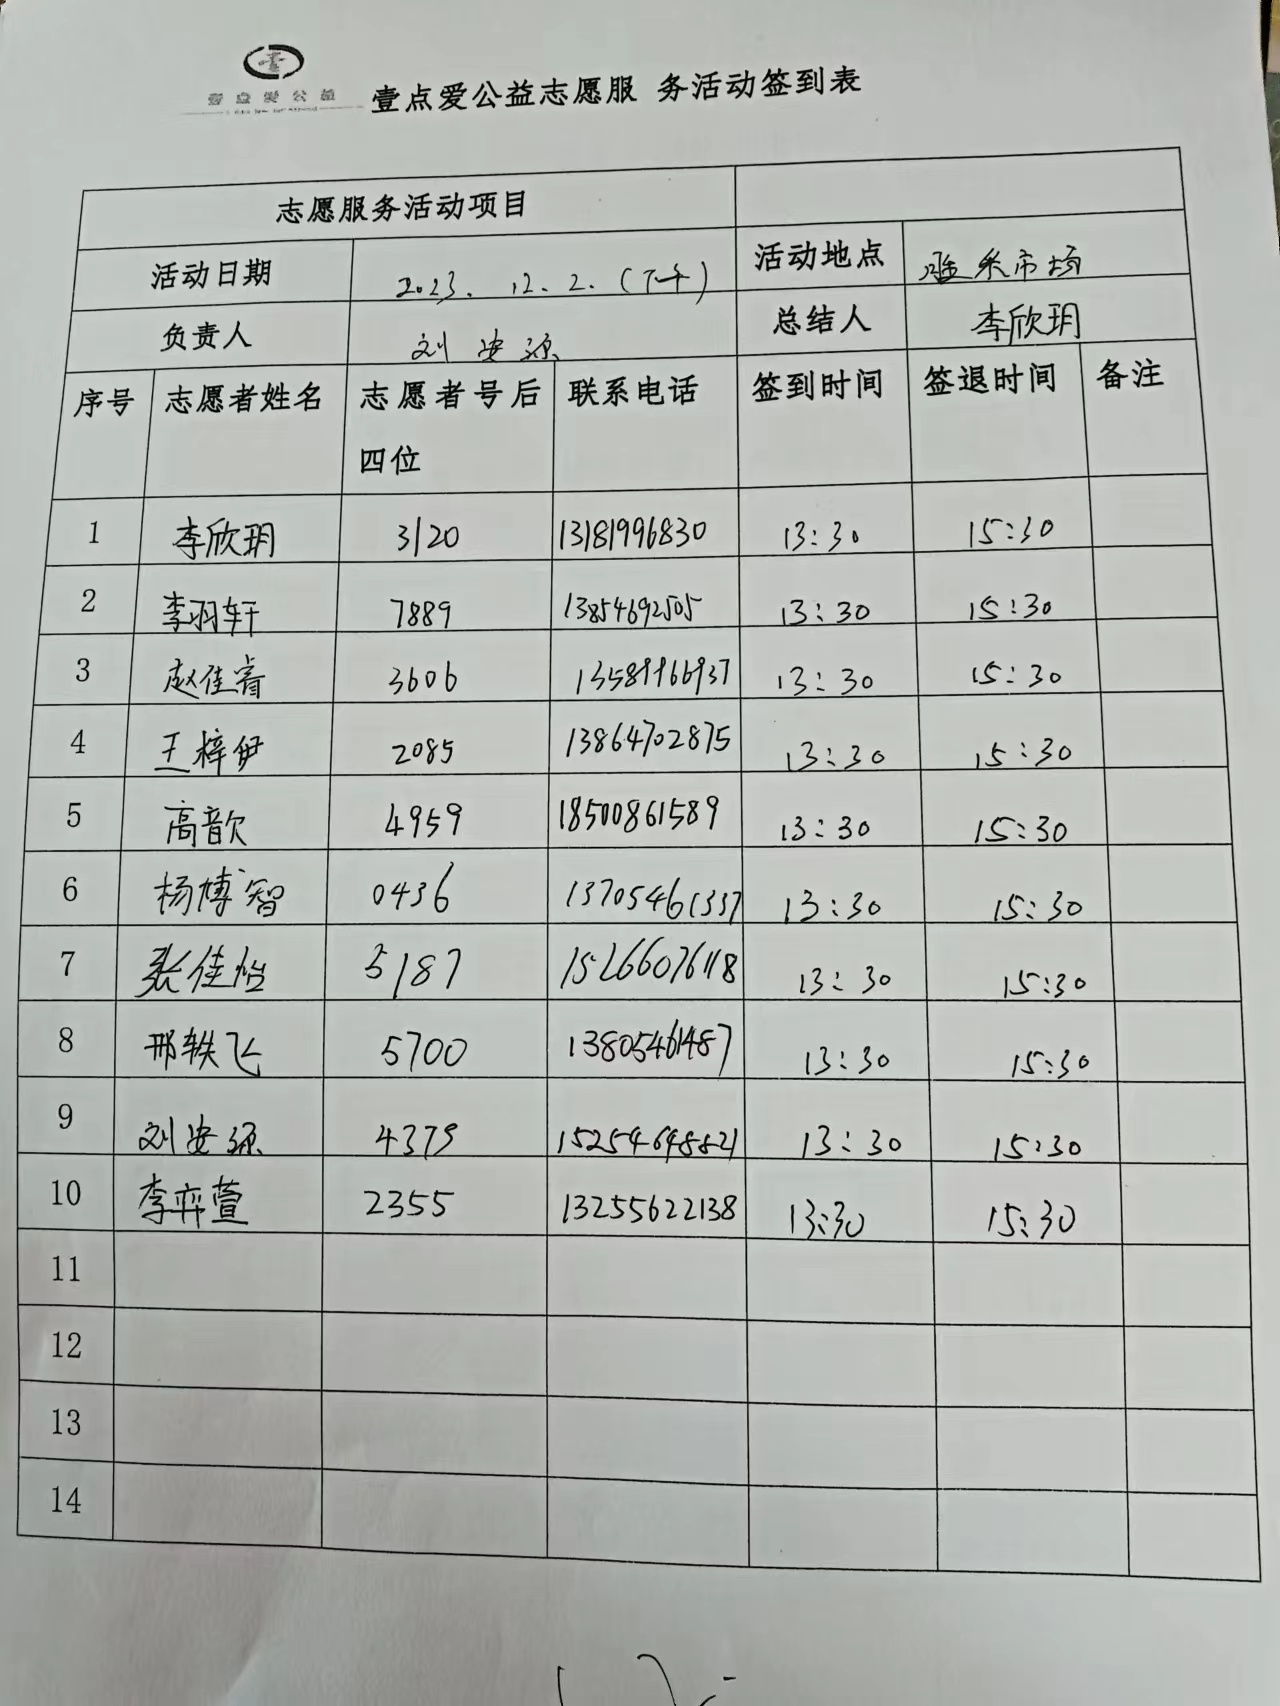 壹点爱公益
壹点爱公益志愿服 务活动签到表
志愿服务活动项目
活动日期 2023. 12. 2.(下午) 活动地点 雅米市场
负责人 刘安源 总结人 李欣玥
序号 志愿者姓名 志愿者号后 联系电话 签到时间 签退时间 备注
四位
1 李欣玥 3120 13181996830 13:30 15:30
2 李羽轩 7889 13854692505 13:30 15:30
3 赵佳睿 3606 13589966937 13:30 15:30
4 王梓伊 2085 13864702875 13:30 15:30
5 高歆 4959 18500861589 13:30 15:30
6 杨博智 0436 13705461337 13:30 15:30
7 张佳怡 5187 15266076118 13:30 15:30
8 邢轶飞 5700 13805461487 13:30 15:30
9 刘安源 4379 15254648821 13:30 15:30
10 李弈萱 2355 13255622138 13:30 15:30
11
12
13
14